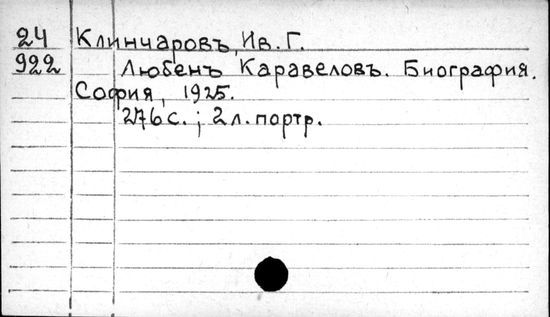 24 Клинчаровъ, Ив. Г.
922 Любенъ Каравеловъ. Биография.
София, 1925.
276 с. ; 2 л. портр.